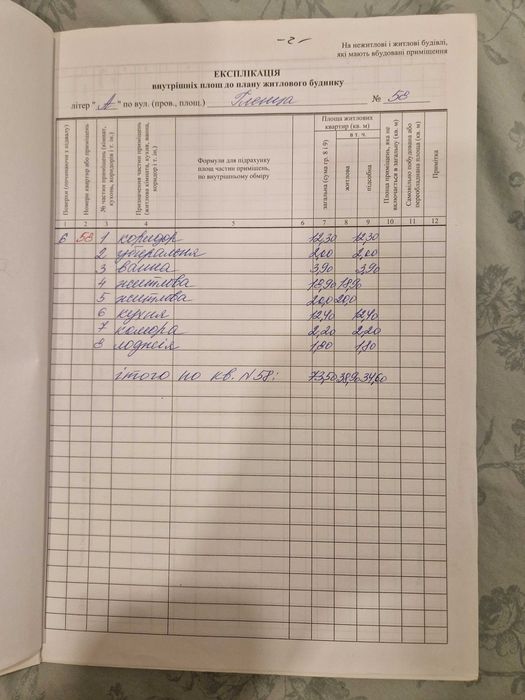 -2-
На нежитлові і житлові будівлі,
які мають вбудовані приміщення
ЕКСПЛІКАЦІЯ
внутрішніх площ до плану житлового будинку
літер " А " по вул. (пров., площ.) № 58
Поверхи (починаючи з підвалу)
Номери квартир або приміщень
№ частин приміщень (кімнат, кухонь, коридорів і т. ін.)
Призначення частин приміщень (житлова кімната, кухня, ванна, коридор і т. ін.)
Формули для підрахунку
площ частин приміщень,
по внутрішньому обміру
Площа житлових
квартир (кв. м)
загальна (сума гр. 8 і 9)
в т. ч.
житлова
підсобна
Площа приміщень, яка не включається в загальну (кв. м)
Самовільно побудована або переобладнана площа (кв. м)
Примітка
1 2 3 4 5 6 7 8 9 10 11 12
6 58 1 коридор 12,30 12,30
2 убиральня 2,00 2,00
3 ванна 3,90 3,90
4 житлова 18,90 18,90
5 житлова 20,0 20,0
6 кухня 12,40 12,40
7 комора 2,20 2,20
8 лоджія 1,80 1,80
ітого по кв. №58: 73,50 38,90 34,60